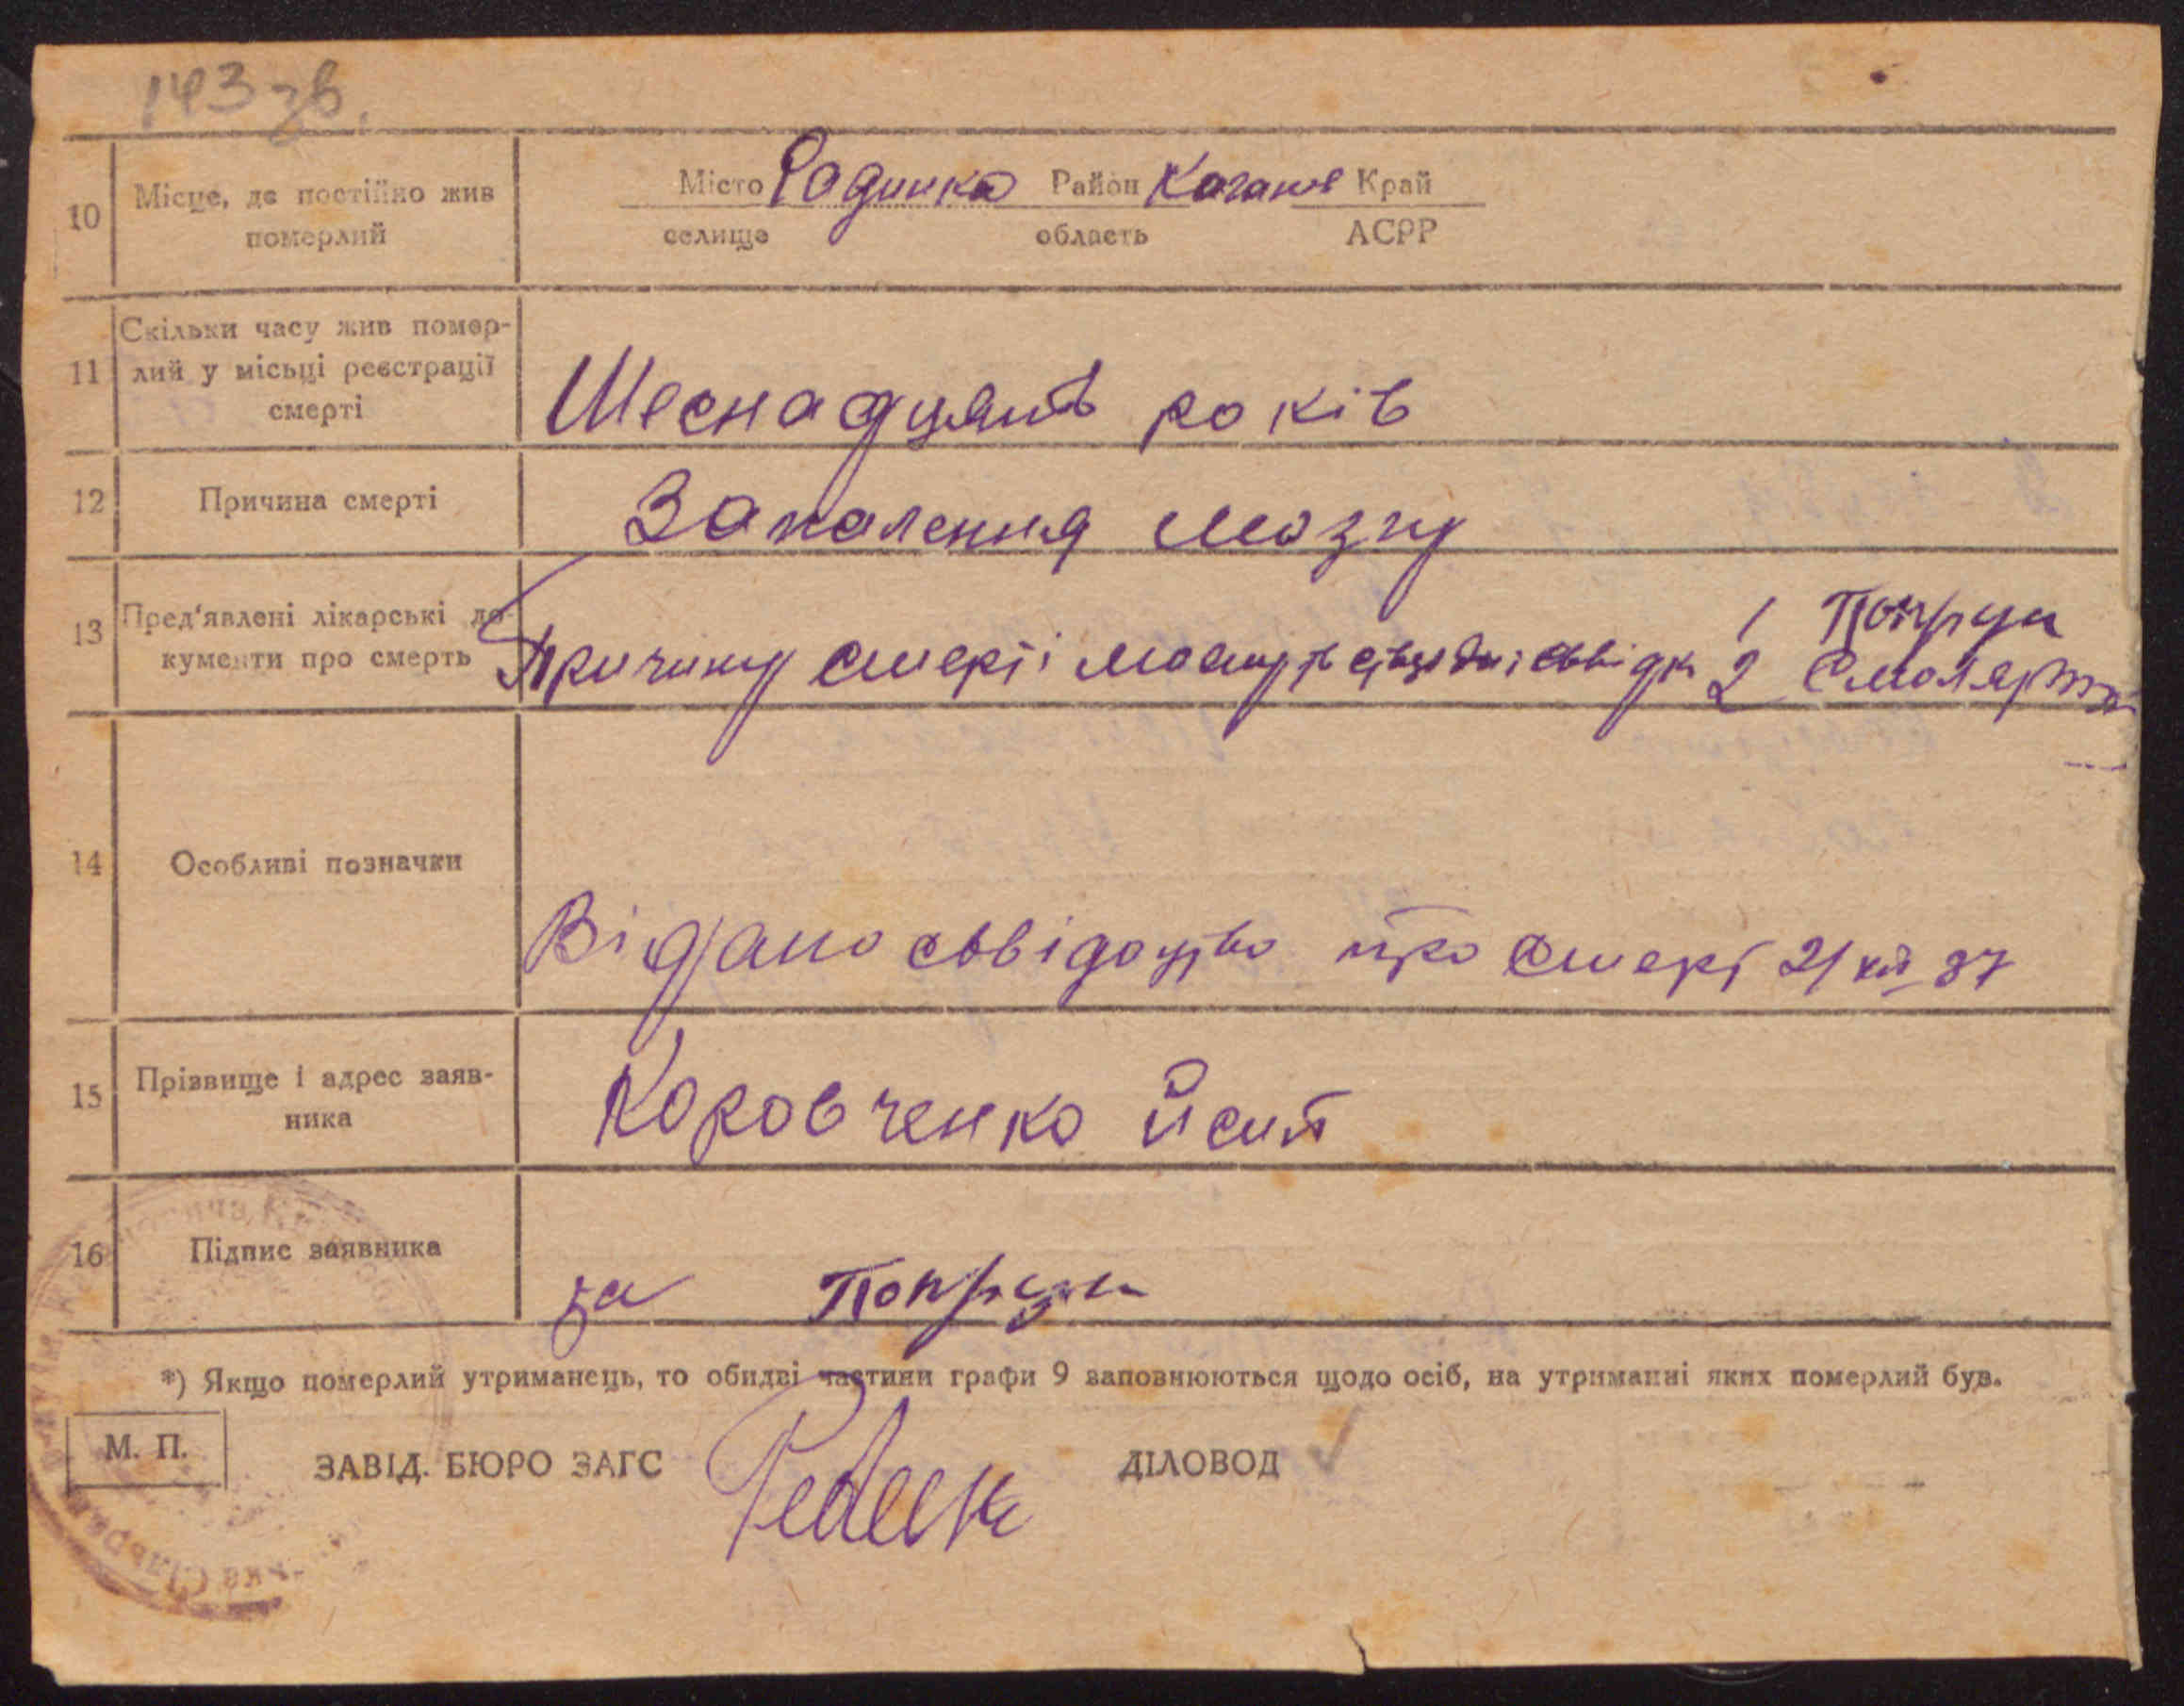 143 зв.
10
Місце, де постійно жив
померлий
Місто Родинка Район Каганов Край
селище область АСРР
11
Скільки часу жив помер-
лий у місьці реєстрації
смерті
Шеснадцять років
12
Причина смерті
Запалення мозку
13
Пред'явлені лікарські до-
кументи про смерть
Причину смерті можуть свідки 1 Попруга
2
14
Особливі позначки
Відано свідоцтво про смерт 21 XII 37
15
Прізвище і адрес заяв-
ника
Коровченко Йсип
16
Підпис заявника
за Попруги
*) Якщо померлий утриманець, то обидві частини графи 9 заповнюються щодо осіб, на утриманні яких померлий був.
М. П.
ЗАВІД. БЮРО ЗАГС ДІЛОВОД